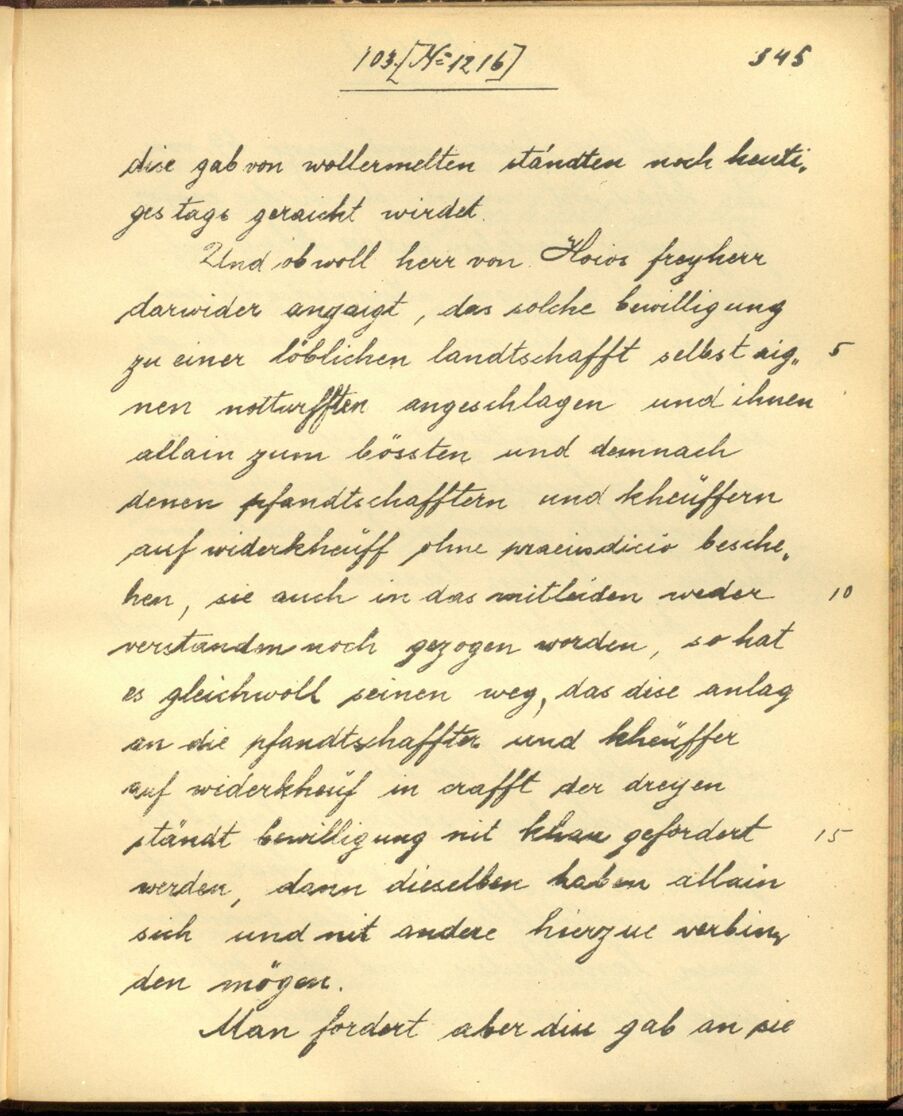 103.[No=1216]
345
dise gab von wollermelten ständten noch heuti,
ges tags geraicht wirdet.
Und obwoll herr von Hoios freyherr
darwider angaigt, das solche bewilligung
zu einer löblichen landtschafft selbst aig,, 5
nen notturfften angeschlagen und ihnen
allain zum bössten und demnach
denen pfandtschafftern und kheüffern
auf widerkheüff ohne praeiudicio besche,
hen, sie auch in das mitleiden weder 10
verstanden noch gezogen worden, so hat
es gleichwoll seinen weg, das dise anlag
an die pfandtschaffter und kheüffer
auf widerkheüf in crafft der dreyen
ständt bewilligung nit khan gefordert 15
werden, dann dieselben haben allain
sich und nit andere hierzue verbin,
den mögen.
Man fordert aber dise gab an sie